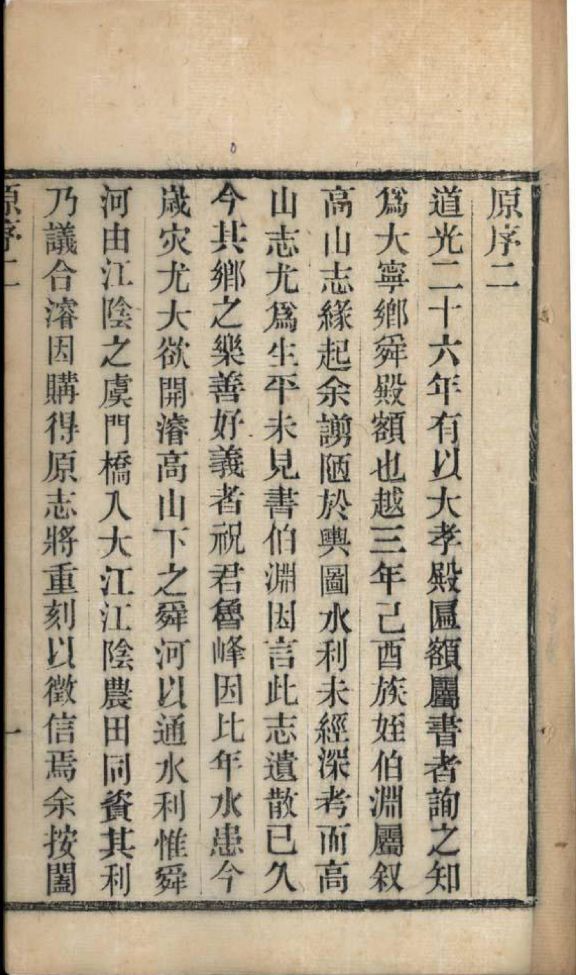 原序二
道光二十六年有以大孝殿匾額屬書者詢之知
爲大寧鄉舜殿額也越三年己酉族姪伯淵屬叙
高山志緣起余謭陋於輿圖水利未經深考而高
山志尤爲生平未見書伯淵因言此志遺散已久
今其鄉之樂善好義者祝君魯峰因比年水患今
歲灾尤大欲開濬高山下之舜河以通水利惟舜
河由江陰之虞門橋入大江江陰農田同資其利
乃議合濬因購得原志將重刻以徵信焉余按闔
原序二
一